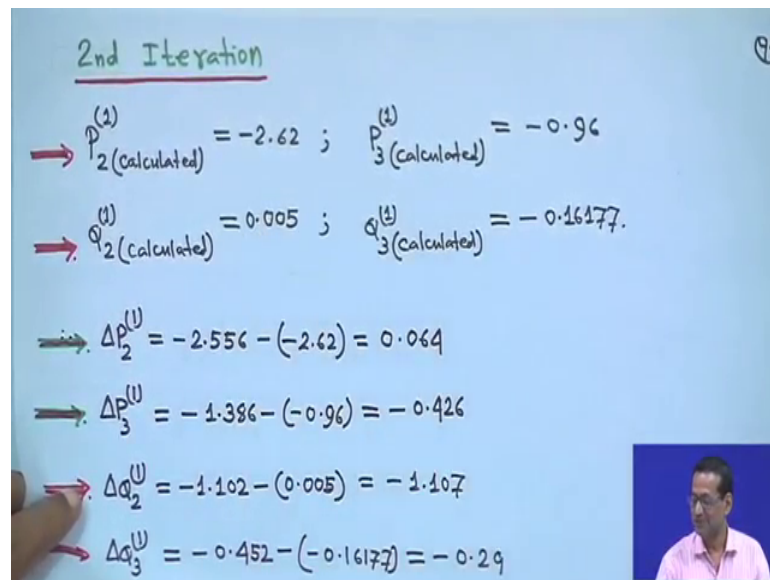 2nd Iteration
P₂(calculated)⁽¹⁾ = -2.62 ; P₃(calculated)⁽¹⁾ = -0.96
Q₂(calculated)⁽¹⁾ = 0.005 ; Q₃(calculated)⁽¹⁾ = -0.16177.
ΔP₂⁽¹⁾ = -2.556 - (-2.62) = 0.064
ΔP₃⁽¹⁾ = -1.386 - (-0.96) = -0.426
ΔQ₂⁽¹⁾ = -1.102 - (0.005) = -1.107
ΔQ₃⁽¹⁾ = -0.452 - (-0.16177) = -0.29